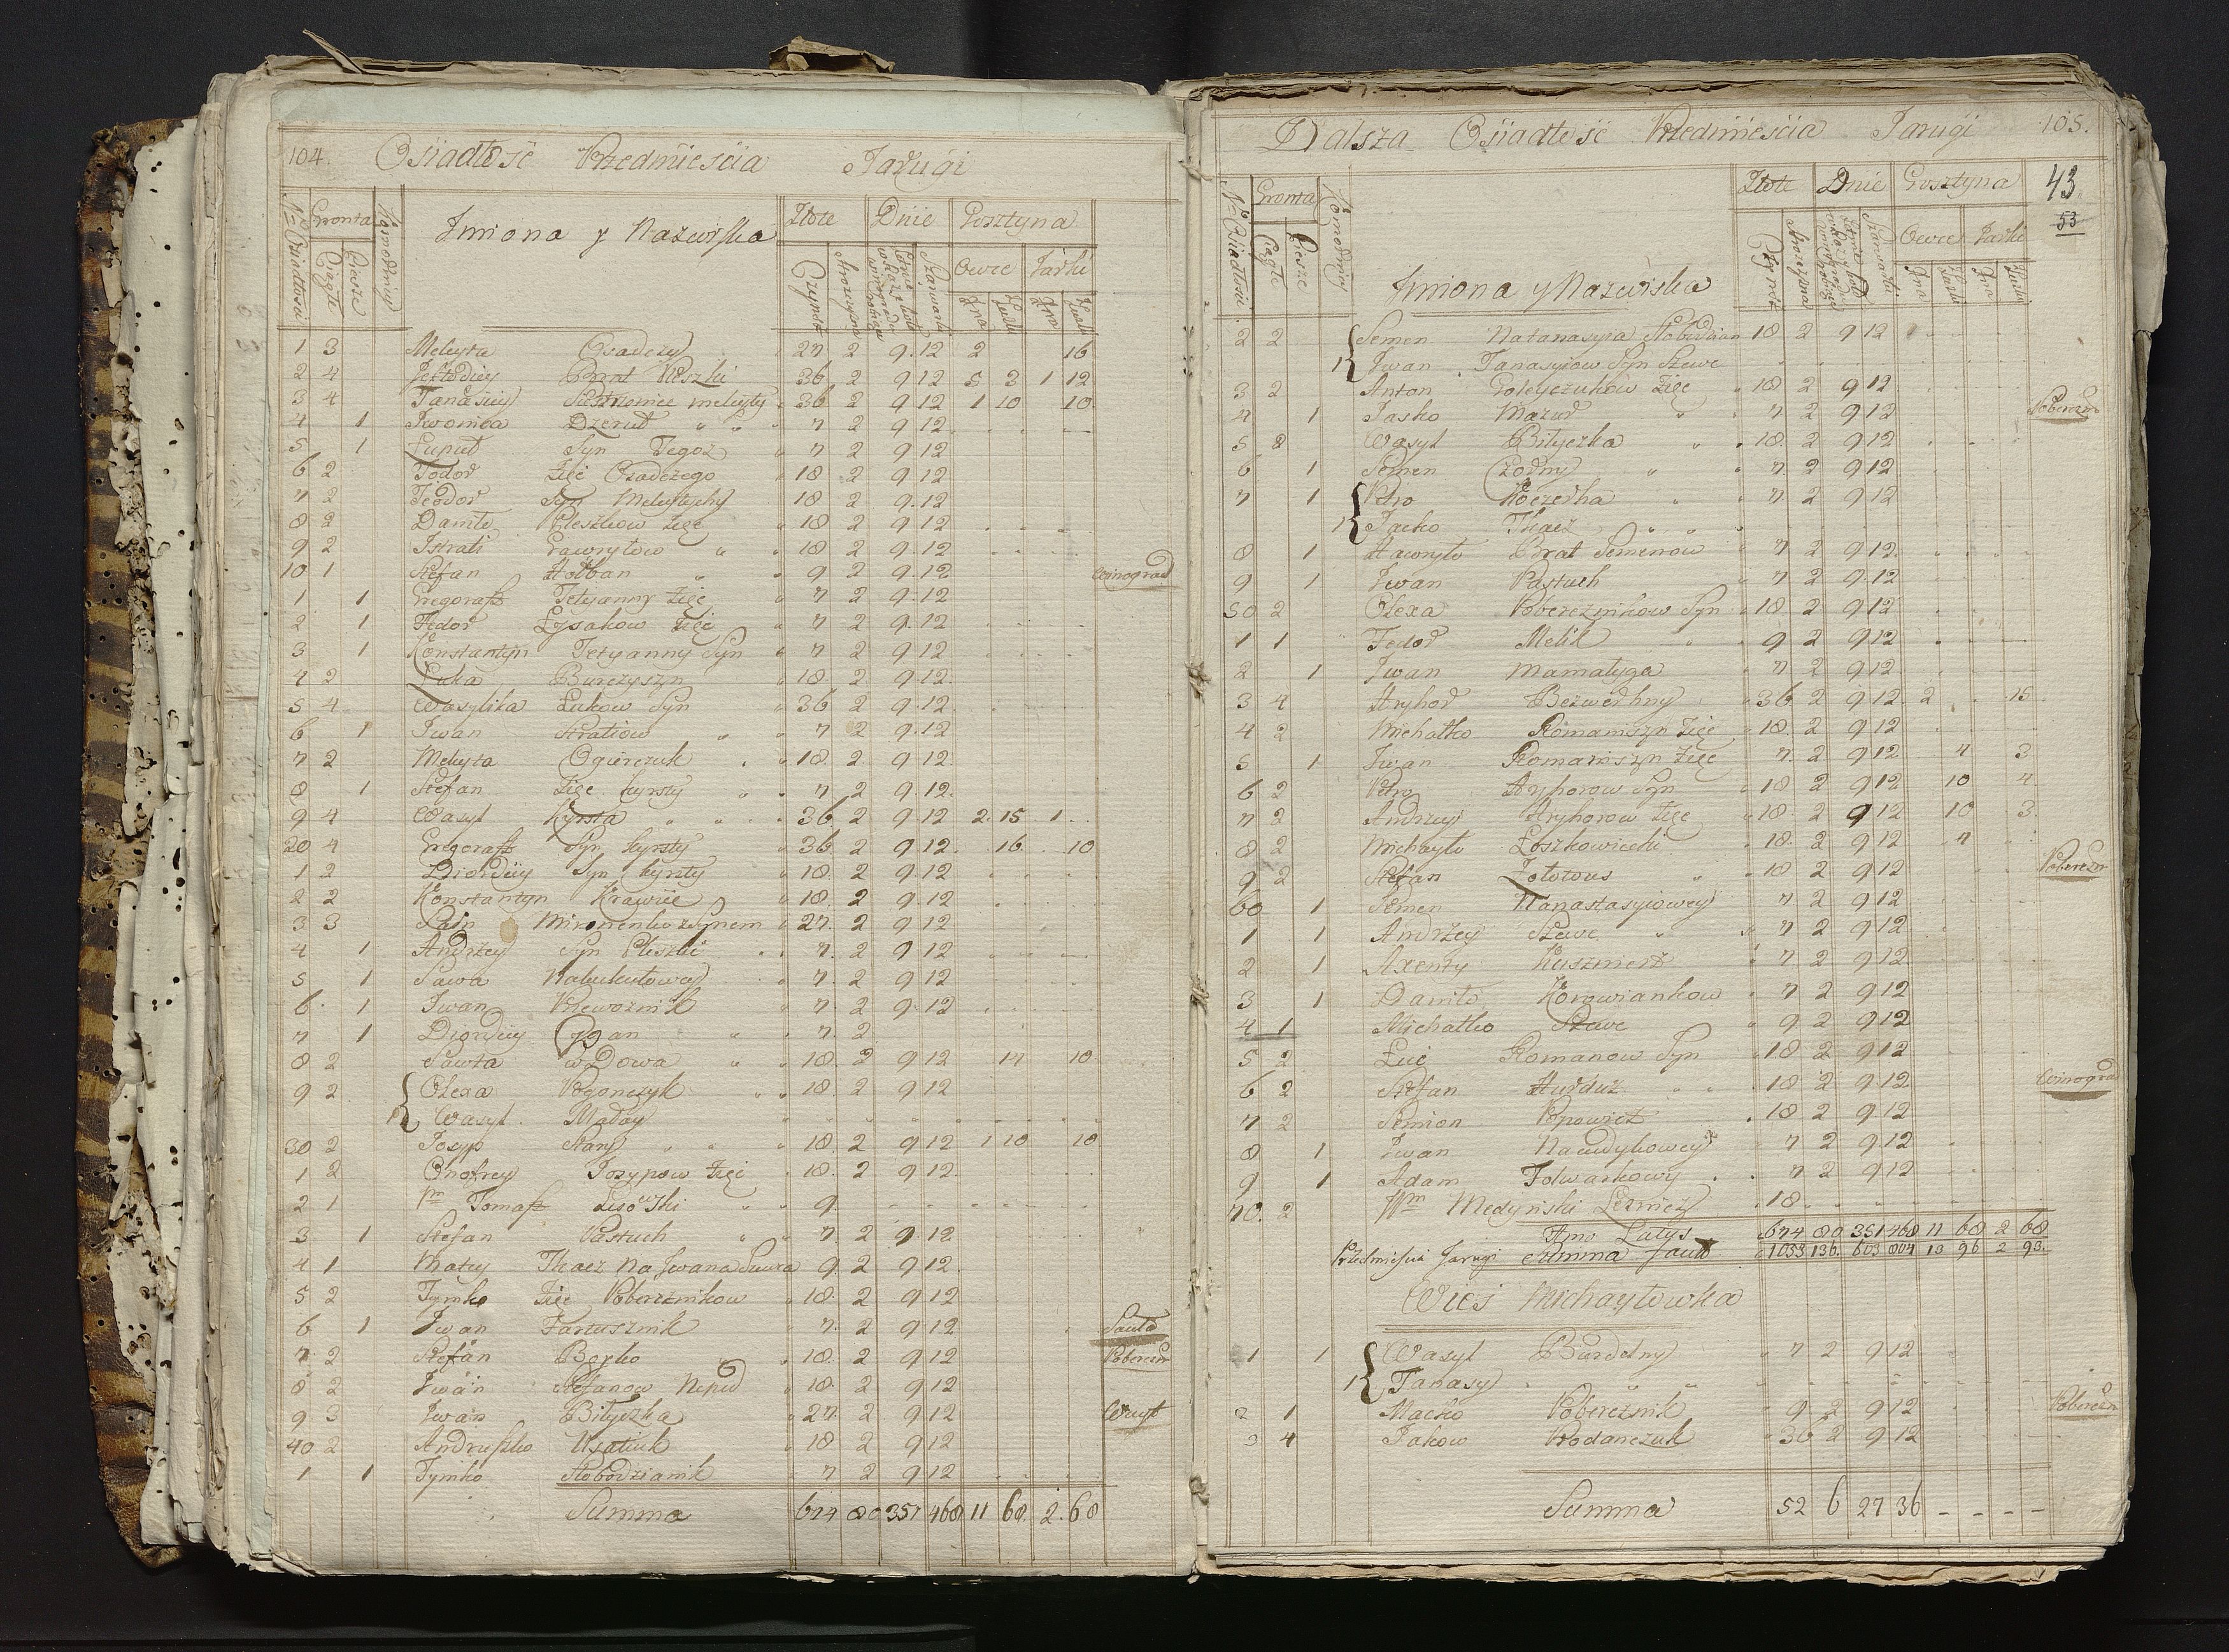 104. Osiadłość Przedmieścia Jarugi
Nro Osiadłości Gronta Ciągłe Piesze Komornicy Jmiona y Nazwiska Złote Czynsz Stroszczyzna Dnie Szarwarki Gosztyna Owce Jarki Dna Ztuki Dna Ztuki
1 3 Mekyta Osadczy 27 2 9. 12 2 16
2 4 Jeftodiey Brat Pleszki 36 2 9 12 5 3 1 12
3 4 Tanasiey Siostrzeniec mekyty 36 2 9 12 1 10 10.
4 1 Jwonica Dzerul 7 2 9 12
5 1 Łupul Syn Tegoż 7 2 9 12
6 2 Todor Zięć Osadczego 18 2 9 12
7 2 Teodor Syn Mekytychy 18 2 9.12
8 2 Daniło Pleszkow Zięć 18 2 9 12
9 2 Jstrati Gawryłow 18 2 9.12
10 1 Stefan Hołban 9 2 9.12 Winograd
1 1 Gregorasz Tetyanny Zięć 7 2 9.12
2 1 Fedor Łysakow Zięć 7 2 9.12
3 1 Konstantyn Tetyanny Syn 7 2 9.12
4 2 Łuka Burczyszyn 18 2 9 12.
5 4 Wasylika Łukow Syn 36 2 9 12
6 1 Jwan Stratiow 7 2 9.12
7 2 Mekyta Ogierczuk 18 2 9 12
8 1 Stefan Zięć kyrsty 7 2 9 12.
9 4 Wasyl Kyrsta 36 2 9 12 2. 15 1
20 4 Gregorasz Syn kyrsty 36 2 9 12. 16. 10
1 2 Diordiey Syn kyrsty 18. 2 9 12
2 2 Konstantyn Krawiec 18. 2 9 12
3 3 Pain Mironenko z Synem 27. 2 9 12
4 1 Andrzey Syn Pleszki 7. 2 9 12
5 1 Sawa Nakukułowey 7. 2 9 12
6. 1 Jwan Przewoznik 7. 2 9.12
7 1 Diordiey Cygan 7. 2
8 2 Pawła Wdowa 18. 2 9 12 14 10.
9 2 Olexa Pogonczyk 18. 2 9 12
1 Wasyl Maday
30 2 Josyp Stary 18 2 9 12 1 10 10
1 2 Onofrey Josypow Zięć 18. 2 9 12.
2 1 Pn Tomasz Lisowski 9.
3 1 Stefan Pastuch 7 2 9 12
4 1 Matey Tkacz Na Jwana 9. 2 9 12.
5 2 Tymko Zięć Pobereznikow 18. 2 9 12
6 1 Jwan Fartusznik 7. 2 9 12
7 2 Stefan Boyko 18. 2 9 12 Poberezn
8 2 Jwan Stefanow 18. 2 9 12
9 3 Jwan Biłyczka 27. 2 9 12
40 2 Andruszko Usatiuk 18 2 9 12
1 1 Tymko Słobodzianik 7 2 9 12
Summa 674 80 351 468 11 68. 2. 68
Dalsza Osiadłość Przedmieścia Jarugi 105.
43
53
Nro Osiadłości Gronta Ciągłe Piesze Komornicy Jmiona y Nazwiska Złote Czynsz Stroszczyzna Dnie Szarwarki Gosztyna Owce Jarki Dna Ztuki Dna Ztuki
2 2 Semen Natanasyia 18 2 9 12
1 Jwan Tanasyiow Syn Szewc
3 2 Anton Gołeyczukow Zięć 18 2 9 12
4 1 Jasko Mazur 7 2 9 12 Poberezn
5 2 Wasyl Biłyczka 18. 2 9 12
6 1 Semen Czodny 7 2 9 12
7 1 Petro Koczerha 7. 2 9 12
1 Jacko Tkacz
8 1 Hawryło Brat Semenow 7 2 9 12.
9 1 Jwan Pastuch 7 2 9.12
50 2 Olexa Pobereznikow Syn 18 2 9 12
1 1 Fedor Melik 9 2 9 12
2 1 Jwan Mamałyga 7 2 9 12
3 4 Hryhor Bezwerhny 36. 2 9 12. 2 15
4 2 Michałko Romaniszyn Zięć 18. 2 9 12
5 1 Jwan Romaniszyn Zięć 7. 2 9 12 4 3
6 2 Petro Hryhorow Syn 18 2 9 12 10 4.
7 2 Andrzey Hryhorow Zięć 18. 2 9 12 10 3.
8 2 Michayło Łoszkowiecki 18. 2 9 12 4
9 2 Stefan Zołotous 18 2 9 12 Poberezn
60 1 Semen Nanastasyiowey 7 2 9 12
1 1 Andrzey Szewc 7 2 9 12
2 1 Axenty Kuszmerz 7 2 9 12
3 1 Daniło Korowiankow 7 2 9 12
4 1 Michałko Szewc 9 2 9 12
5 2 Łuć Romanow Syn 18 2 9 12
6 2 Stefan Hurduz 18 2 9.12 Winograd
7 2 Semion Popowicz 18 2 9 12
8 1 Jwan 7 2 9.12
9 1 Adam Folwarkowy 7 2 9.12
70. 2 Wm Medyński Lesniczy 18
Hyno Latys 674 80 351 468 11 68 2 68
Przedmieścia Jarugi Summa facit 1033 136. 603 804 13 96 2 93.
Wieś Michayłowka
1 1 Wasyl Burdelny 7 2 9 12
1 Tanasy
2 1 Maćko Pobereznik 9 2 9 12 Poberezn
3 4 Jakow Prodanczuk 36 2 9 12
Summa 52 6 27 36 - - - -